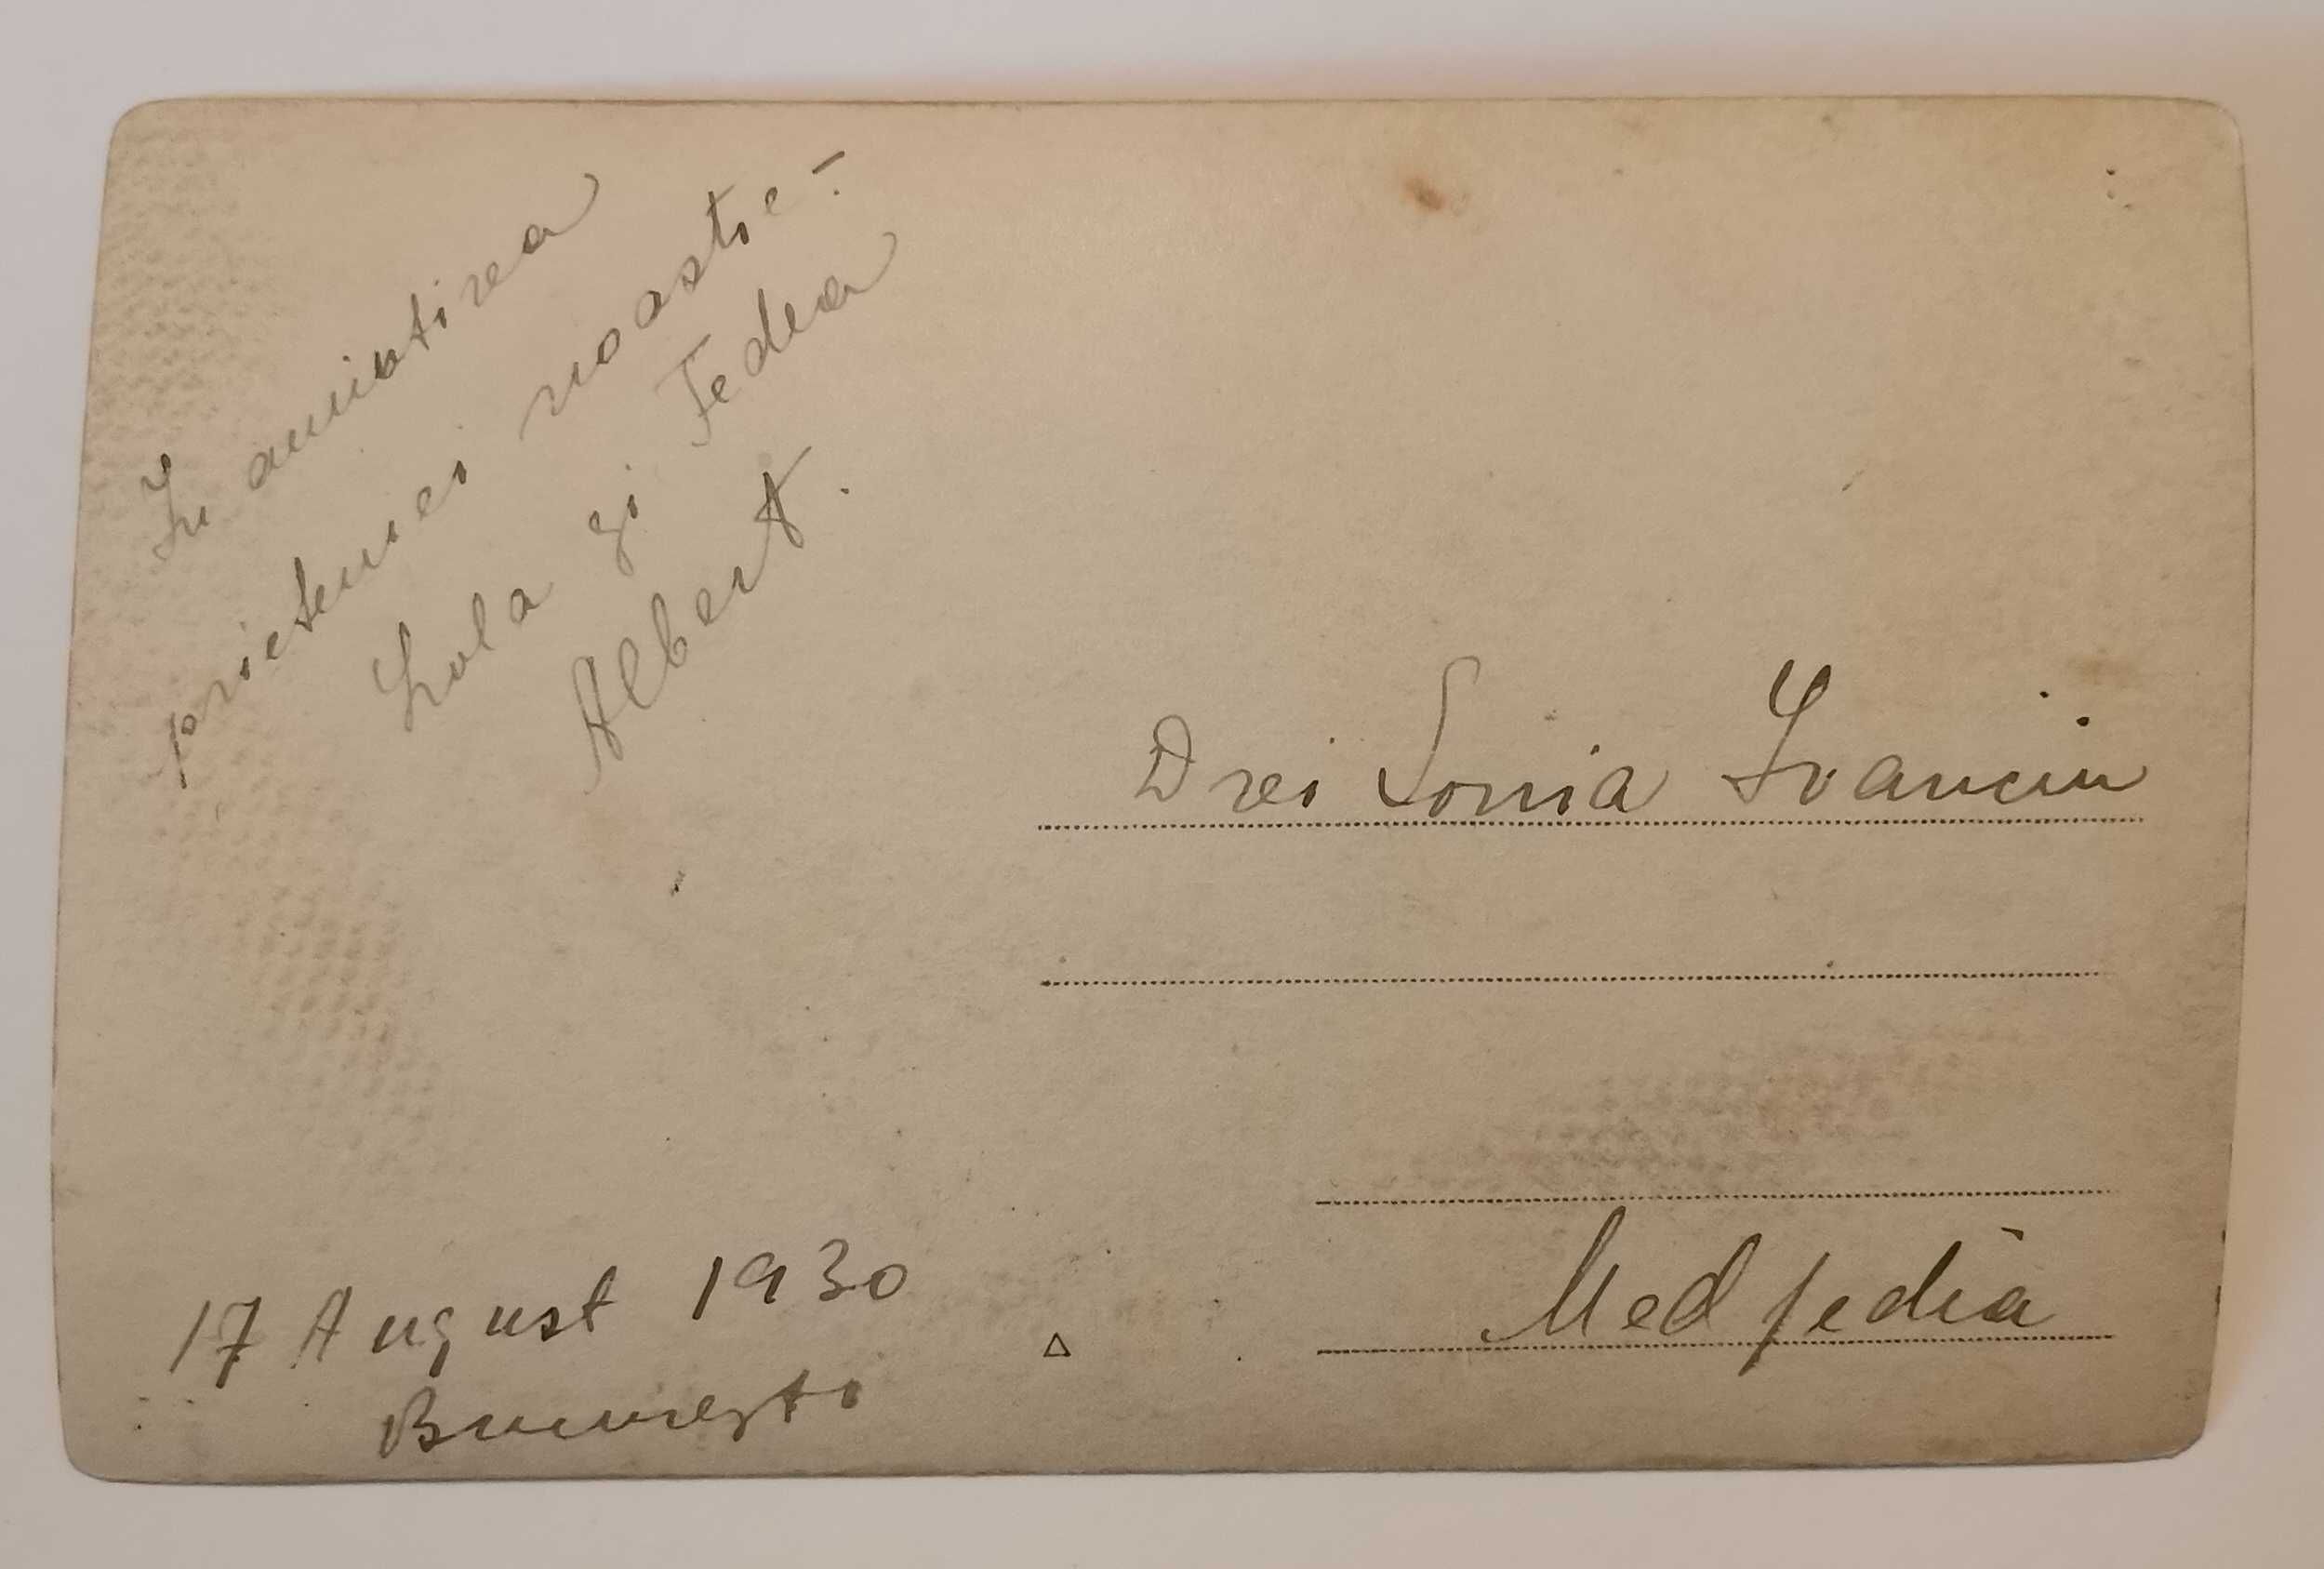 In amintirea
prieteniei noastre -
Lola și Fedea
Albert.
Drei Sonia Ivanciu
Medjedia
17 August 1930
București